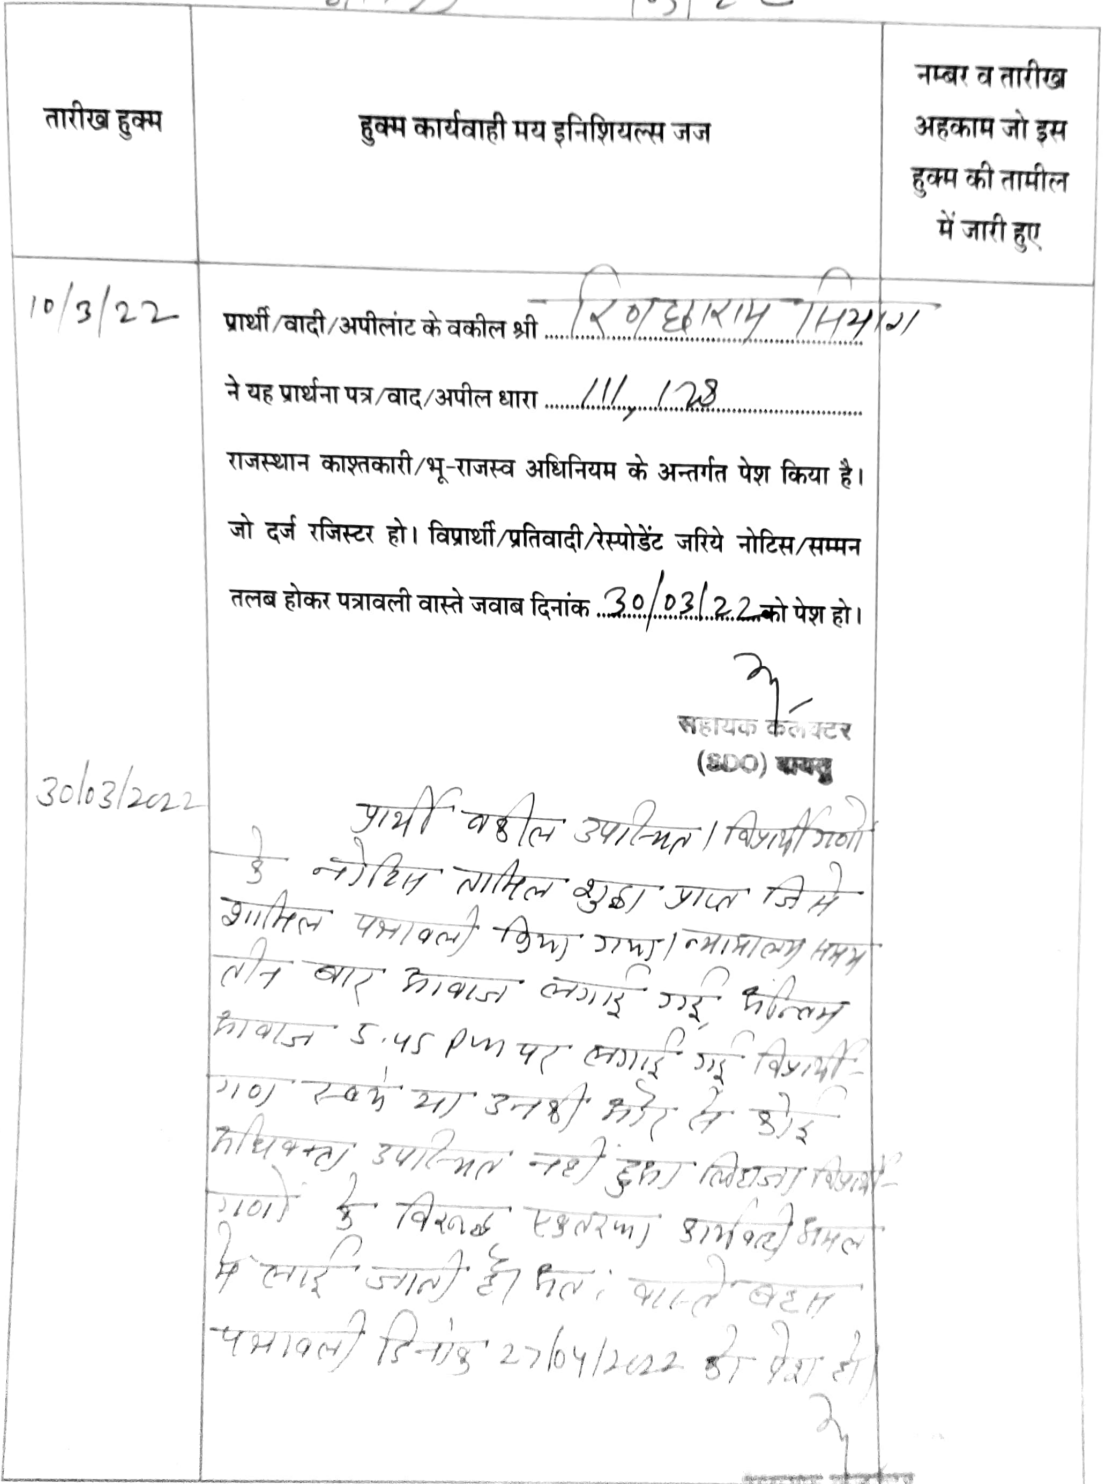 तारीख हुक्म
हुक्म कार्यवाही मय इनिशियल्स जज
नम्बर व तारीख
अहकाम जो इस
हुक्म की तामील
में जारी हुए
10/3/22
प्रार्थी/वादी/अपीलांट के वकील श्री
ने यह प्रार्थना पत्र/वाद/अपील धारा 111, 128
राजस्थान काश्तकारी/भू-राजस्व अधिनियम के अन्तर्गत पेश किया है।
जो दर्ज रजिस्टर हो। विप्रार्थी/प्रतिवादी/रेस्पोडेंट जरिये नोटिस/सम्मन
तलब होकर पत्रावली वास्ते जवाब दिनांक 30/03/22 को पेश हो।
सहायक कलक्टर
(SDO) बायतु
30/03/2022
प्रार्थी वकील उपस्थित। विप्रार्थीगणों
के नोटिस तामिल शुदा प्राप्त जिसे
शामिल पत्रावली किया गया। न्यायालय समय
तीन बार आवाज लगाई गई, अन्तिम
आवाज 5.45 pm पर लगाई गई विप्रार्थी-
गण स्वयं या उनकी ओर से कोई
अधिवक्ता उपस्थित नहीं हुआ लिहाजा विप्रार्थी-
गणों के विरूद्ध एकतरफा कार्यवाही अमल
में लाई जाती है। अतः वास्ते बहस
पत्रावली दिनांक 27/04/2022 को पेश हो।